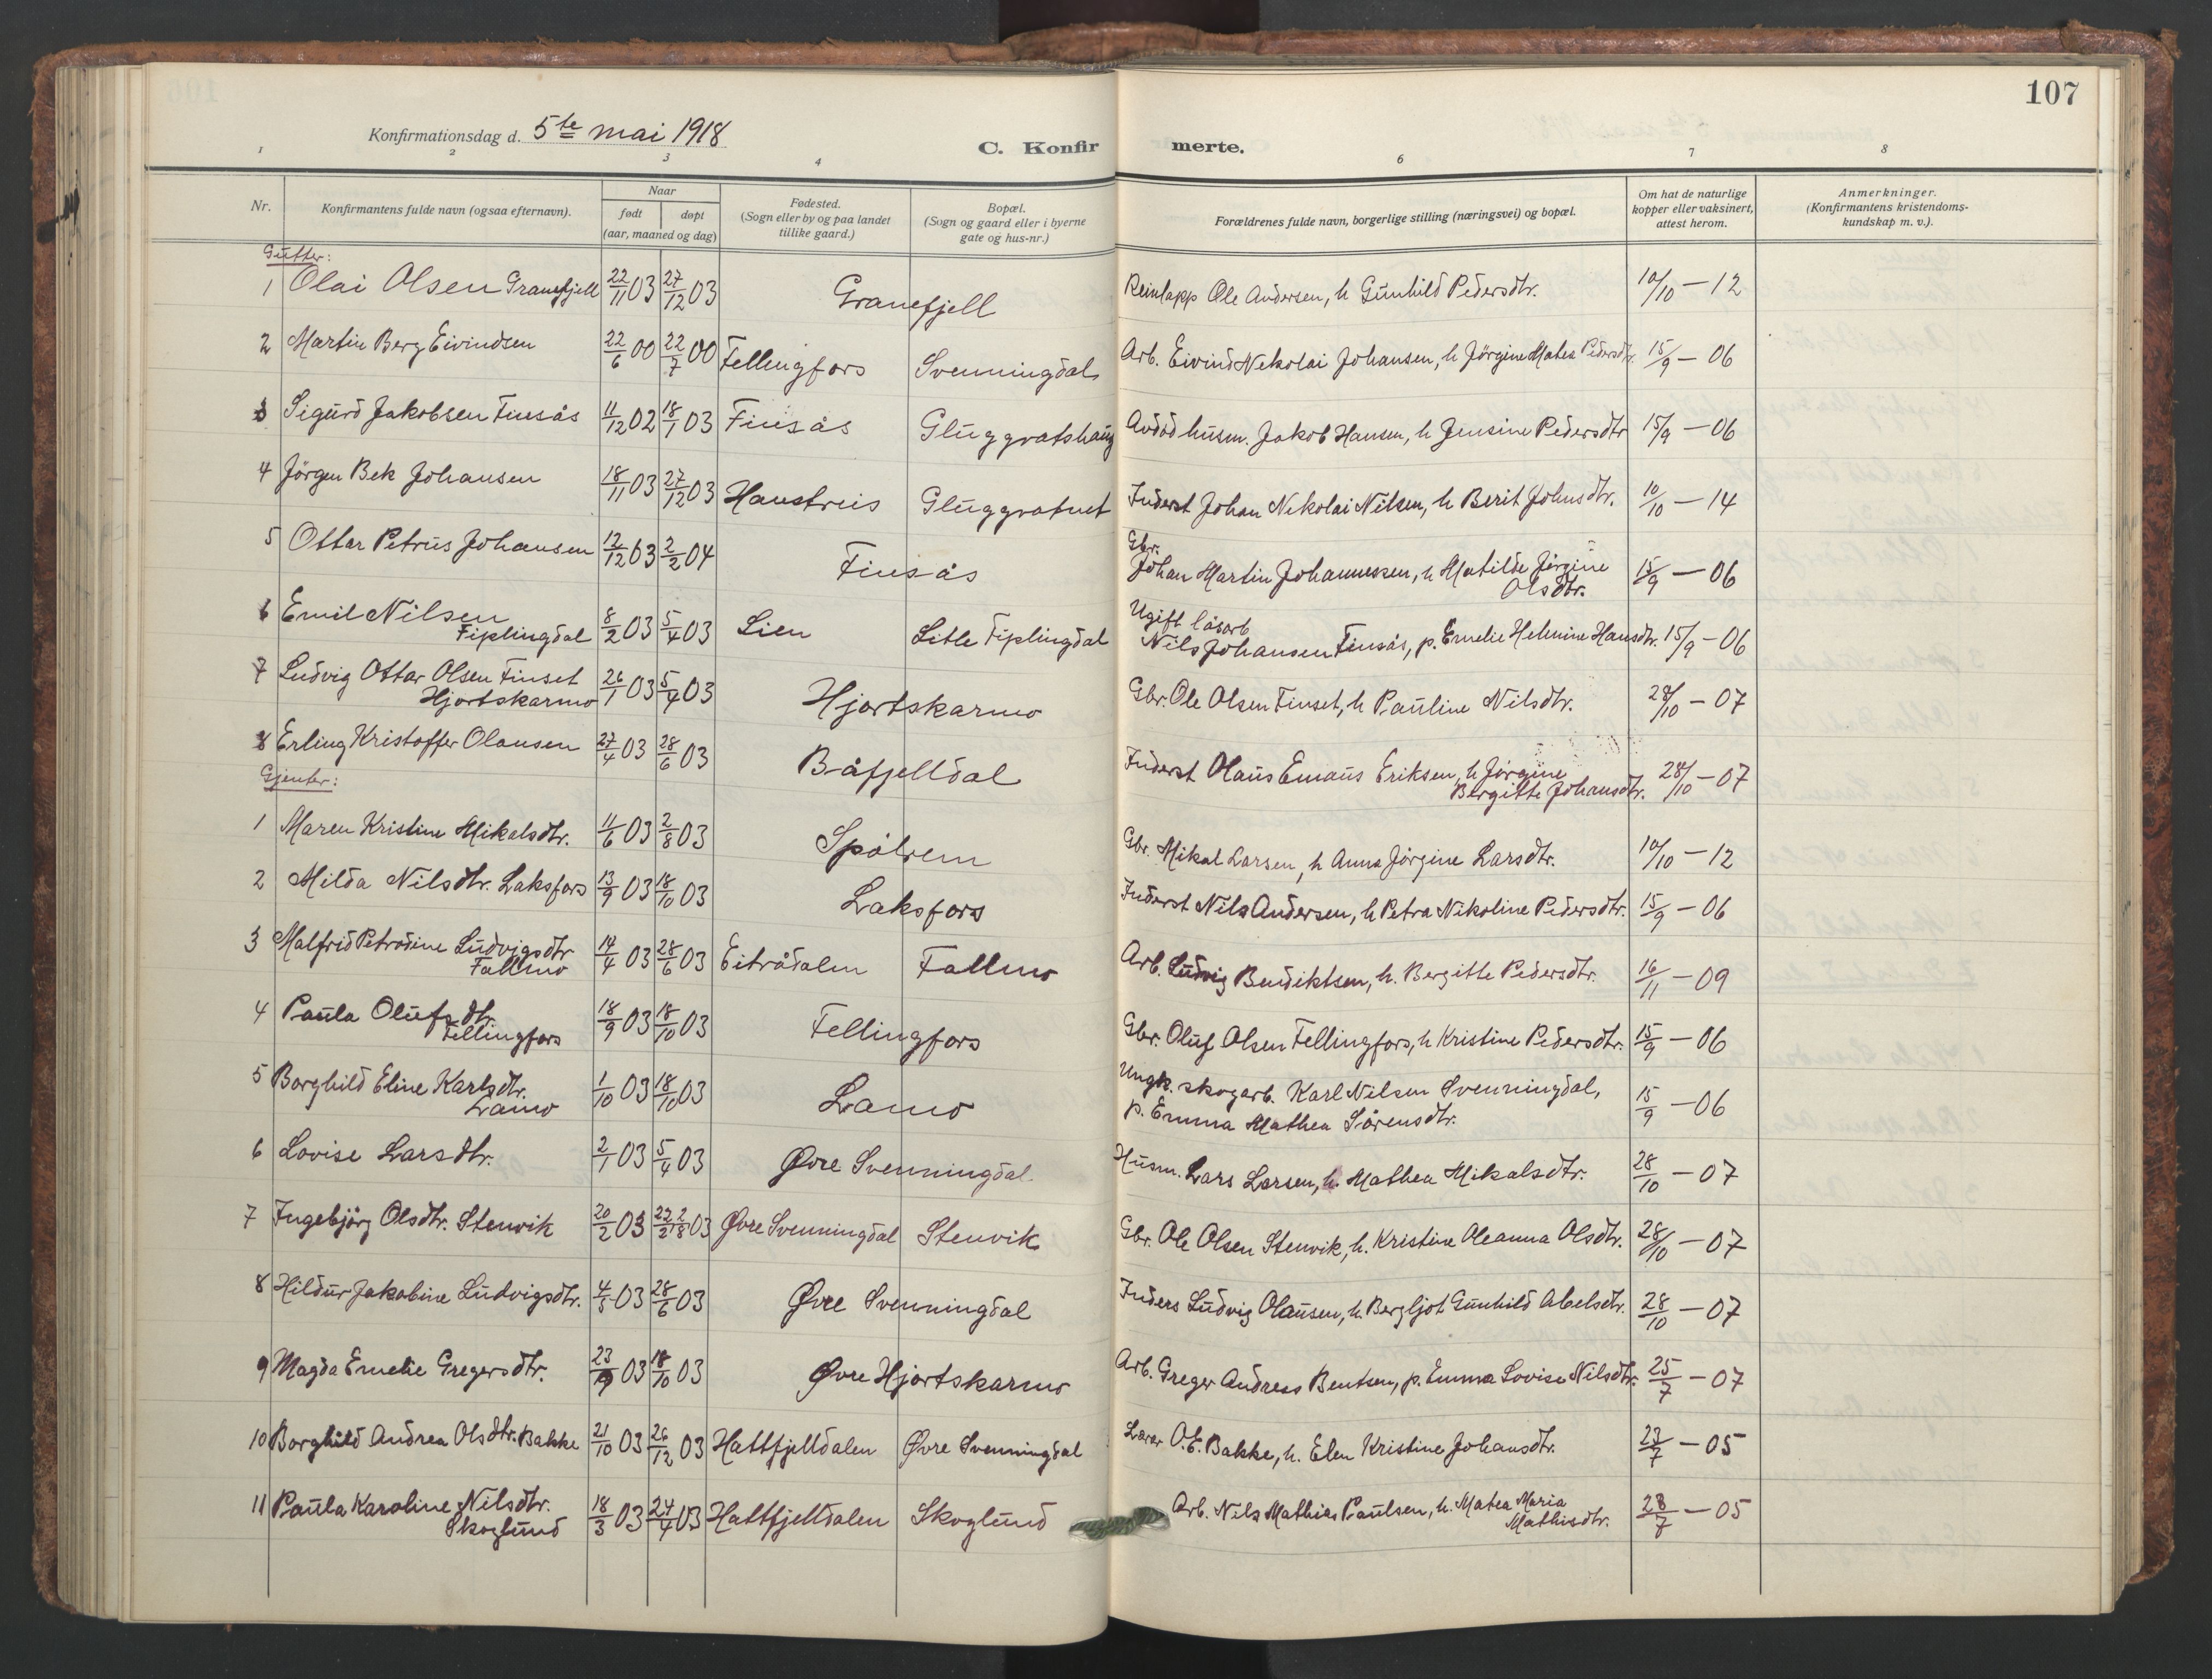 107
Konfirmationsdag d. 5te mai 1918
C. Konfirmerte.
1 2 3 4 6 7 8
Nr. Konfirmantens fulde navn (ogsaa efternavn). Naar født døpt (aar, maaned og dag) Fødested. (Sogn eller by og paa landet tillike gaard.) Bopæl. (Sogn og gaard eller i byerne gate og hus-nr.) Forældrenes fulde navn, borgerlige stilling (næringsvei) og bopæl. Om hat de naturlige kopper eller vaksinert, attest herom. Anmerkninger. (Konfirmantens kristendomskundskap m. v.).
Gutter:
1 Olai Olsen Granefjell 22/11 03 27/12 03 Granefjell Reinlapp Ole Andersen, h Gunhild Pedersdtr. 10/10 – 12
2 Martin Berg Eivindsen 22/6 00 22/7 00 Fellingfors Svenningdal Arb. Eivind Nekolai Johansen, h Jörgine Matea Pedersdtr. 15/9 – 06
3 Sigurd Jakobsen Finsås 11/12 02 18/1 03 Finsås Gluggvatshaug Avdød husm. Jakob Hansen, h Jensine Pedersdtr 15/9 – 06
4 Jörgen Bek Johansen 18/11 03 27/12 03 Haustreis Gluggvatnet Inderst Johan Nekolai Nilsen, h Berit Johnsdtr. 10/10 – 14
5 Ottar Petrus Johansen 12/12 03 2/2 04 Finsås Gbr. Johan Martin Johannessen, h Matilde Jörgine
Olsdtr. 15/9 – 06
6 Emil Nilsen
Fiplingdal 8/2 03 5/4 03 Lien Litle Fiplingdal Ugift løsarb
Nils Johansen Finsås, p. Emelie Helmine Hansdtr. 15/9 – 06
7 Ludvig Ottar Olsen Finset
Hjortskarmo 26/1 03 5/4 03 Hjortskarmo Gbr. Ole Olsen Finset, h Pauline Nilsdtr. 28/10 – 07
8 Erling Kristoffer Olausen 27/4 03 28/6 03 Båfjelldal Inderst Olaus Emaus Eriksen, h Jörgine
Bergitte Johansdtr. 28/10 – 07
Gjenter:
1 Maren Kristine Mikalsdtr. 11/6 03 2/8 03 Spålrem Gbr. Mikal Larsen, h Anna Jörgine Larsdtr. 10/10 – 12
2 Milda Nilsdtr. Laksfors 13/9 03 18/10 03 Laksfors Inderst Nils Andersen, h Petra Nikoline Pedersdtr. 15/9 – 06
3 Malfrid Petrodine Ludvigsdtr
Fallmo 14/4 03 28/6 03 Eitrådalen Fallmo Arb. Ludvig Bendiktsen, h. Bergitte Pedersdtr. 16/11 – 09
4 Paula Olufsdtr.
Fellingfors 18/9 03 18/10 03 Fellingfors Gbr. Oluf Olsen Fellingfors, h Kristine Pedersdtr. 15/9 – 06
5 Borghild Eline Karlsdtr.
Lamo 1/10 03 18/10 03 Lamo Ungk. skogarb. Karl Nilsen Svenningdal,
p. Emma Mathea Sörensdtr. 15/9 – 06
6 Lovise Larsdtr. 2/1 03 5/4 03 Øvre Svenningdal Husm. Lars Larsen, h. Mathea Mikalsdtr. 28/10 – 07
7 Ingebjörg Olsdtr. Stenvik 20/2 03 22/2 2/8 03 Øvre Svenningdal Stenvik Gbr. Ole Olsen Stenvik, h. Kristine Oleanna Olsdtr. 28/10 – 07
8 Hildur Jakobine Ludvigsdtr. 4/5 03 28/6 03 Øvre Svenningdal Inders Ludvig Olausen, h. Bergljot Gunhild Abelsdtr. 28/10 – 07
9 Magda Emelie Gregersdtr. 23/9 03 18/10 03 Øvre Hjortskarmo Arb. Greger Andreas Bentsen, p. Emma Lovise Nilsdtr. 25/7 – 07
10 Borghild Andrea Olsdtr. Bakke 21/10 03 26/12 03 Hattfjelldalen Øvre Svenningdal Lærer O.E. Bakke, h. Elen Kristine Johansdtr. 23/7 – 05
11 Paula Karoline Nilsdtr.
Skoglund 18/3 03 24/4 03 Hattfjelldalen Skoglund Arb. Nils Mathias Paulsen, h. Matea Maria
Mathisdtr. 28/7 – 05